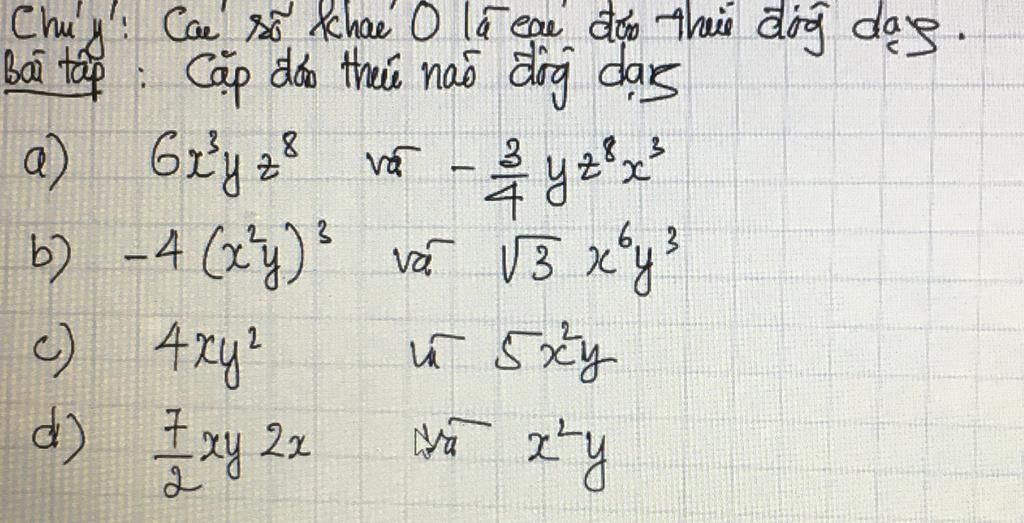 Chú ý: Các số khác 0 là các đơn thức đồng dạng.
Bài tập : Cặp đơn thức nào đồng dạng
a) 6x³yz⁸ và -3/4 yz⁸x³
b) -4(x²y)³ và √3 x⁶y³
c) 4xy² và 5x²y
d) 7/2 xy 2x và x²y